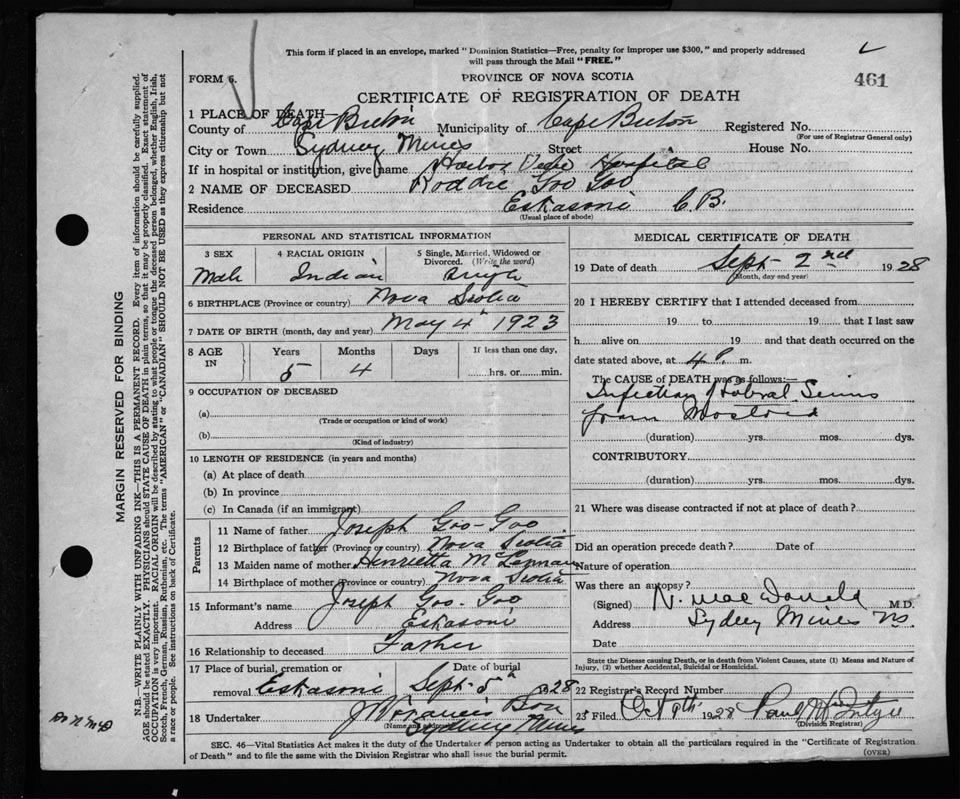 This form if placed in an envelope, marked "Dominion Statistics—Free, penalty for improper use $300," and properly addressed
will pass through the Mail "FREE."
FORM 6.
PROVINCE OF NOVA SCOTIA
461
CERTIFICATE OF REGISTRATION OF DEATH
1 PLACE OF DEATH
County of Cape Breton Municipality of Cape Breton Registered No.
(For use of Registrar General only)
City or Town Sydney Mines Street House No.
If in hospital or institution, give name Harbor View Hospital
2 NAME OF DECEASED Roddie Goo Goo
Residence Eskasoni C.B.
(Usual place of abode)
PERSONAL AND STATISTICAL INFORMATION
3 SEX 4 RACIAL ORIGIN 5 Single, Married, Widowed or Divorced. (Write the word)
Male Indian Single
6 BIRTHPLACE (Province or country) Nova Scotia
7 DATE OF BIRTH (month, day and year) May 4th 1923
8 AGE IN Years Months Days If less than one day,
5 4 hrs. or min.
9 OCCUPATION OF DECEASED
(a)
(Trade or occupation or kind of work)
(b)
(Kind of industry)
10 LENGTH OF RESIDENCE (in years and months)
(a) At place of death
(b) In province
(c) In Canada (if an immigrant)
Parents
11 Name of father Joseph Goo-Goo
12 Birthplace of father (Province or country) Nova Scotia
13 Maiden name of mother Henrietta
14 Birthplace of mother (Province or country) Nova Scotia
15 Informant's name Joseph Goo-Goo
Address Eskasoni
16 Relationship to deceased Father
17 Place of burial, cremation or Date of burial
removal Eskasoni Sept 5th 1928
18 Undertaker
(Name and address)
Sydney Mines
MEDICAL CERTIFICATE OF DEATH
19 Date of death Sept 2nd 1928
(Month, day and year)
20 I HEREBY CERTIFY that I attended deceased from
19 to 19 that I last saw
h alive on 19 and that death occurred on the
date stated above, at 4 P. m.
The CAUSE of DEATH was as follows:—
Infection of
from
(duration) yrs. mos. dys.
CONTRIBUTORY
(duration) yrs. mos. dys.
21 Where was disease contracted if not at place of death?
Did an operation precede death? Date of
Nature of operation
Was there an autopsy?
(Signed) N. MacDonald M.D.
Address Sydney Mines N.S.
Date
State the Disease causing Death, or in death from Violent Causes, state (1) Means and Nature of
Injury, (2) whether Accidental, Suicidal or Homicidal.
22 Registrar's Record Number
23 Filed Oct 1928 Paul
(Division Registrar)
SEC. 46—Vital Statistics Act makes it the duty of the Undertaker or person acting as Undertaker to obtain all the particulars required in the "Certificate of Registration
of Death" and to file the same with the Division Registrar who shall issue the burial permit.
(OVER)
MARGIN RESERVED FOR BINDING
N.B.—WRITE PLAINLY WITH UNFADING INK—THIS IS A PERMANENT RECORD. Every item of information should be carefully supplied.
AGE should be stated EXACTLY. PHYSICIANS should STATE CAUSE OF DEATH in plain terms, so that it may be properly classified. Exact statement of
OCCUPATION is very important. RACIAL ORIGIN will be described by stating to what people or tongue the deceased person belonged, whether English, Irish,
Scotch, French, German, Russian, Ruthenian, etc. The terms "AMERICAN" or "CANADIAN" SHOULD NOT BE USED as they express citizenship but not
a race or people. See instructions on back of Certificate.